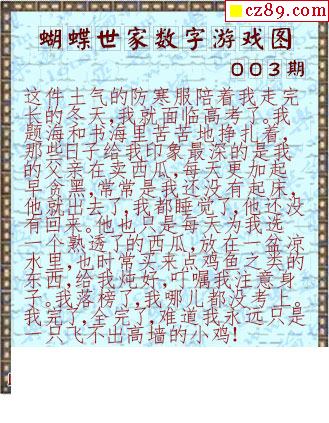 cz89.com
蝴蝶世家数字游戏图
003期
这件土气的防寒服陪着我走完
长的冬天,我就面临高考了。我
题海和书海里苦苦地挣扎着,
那些日子给我印象最深的是我
的父亲在卖西瓜,每天更加起
早贪黑,常常是我还没有起床,
他就出去了,我都睡觉了,他还没
有回来。他也只是每天为我选
一个熟透了的西瓜,放在一盆凉
水里,也时常买来点鸡鱼之类的
东西,给我炖好,叮嘱我注意身
子。我落榜了,我哪儿都没考上。
我完了,全完了,难道我永远只是
一只飞不出高墙的小鸡!